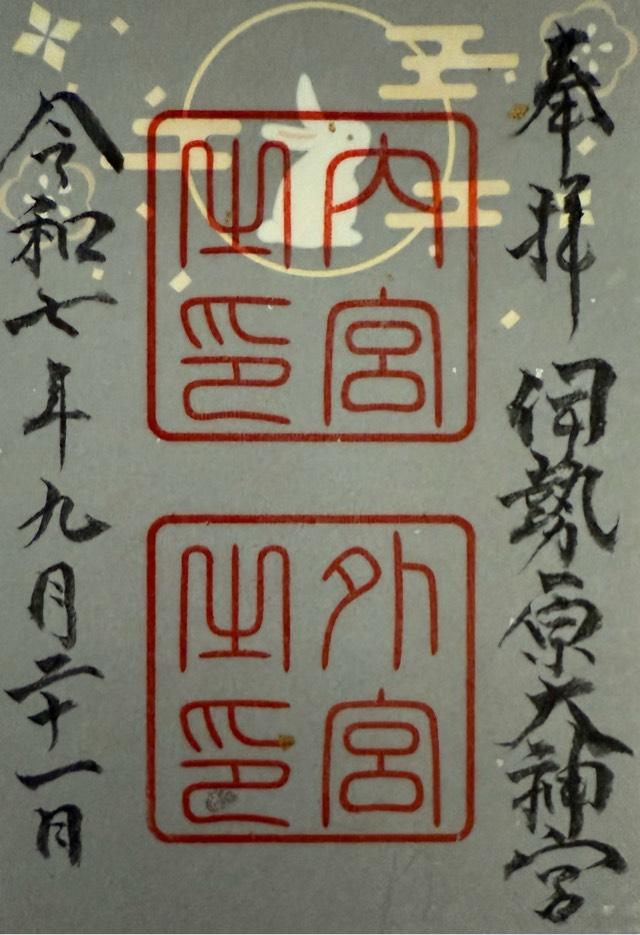 奉拝 伊勢原大神宮
内宮
之印
外宮
之印
令和七年九月二十一日